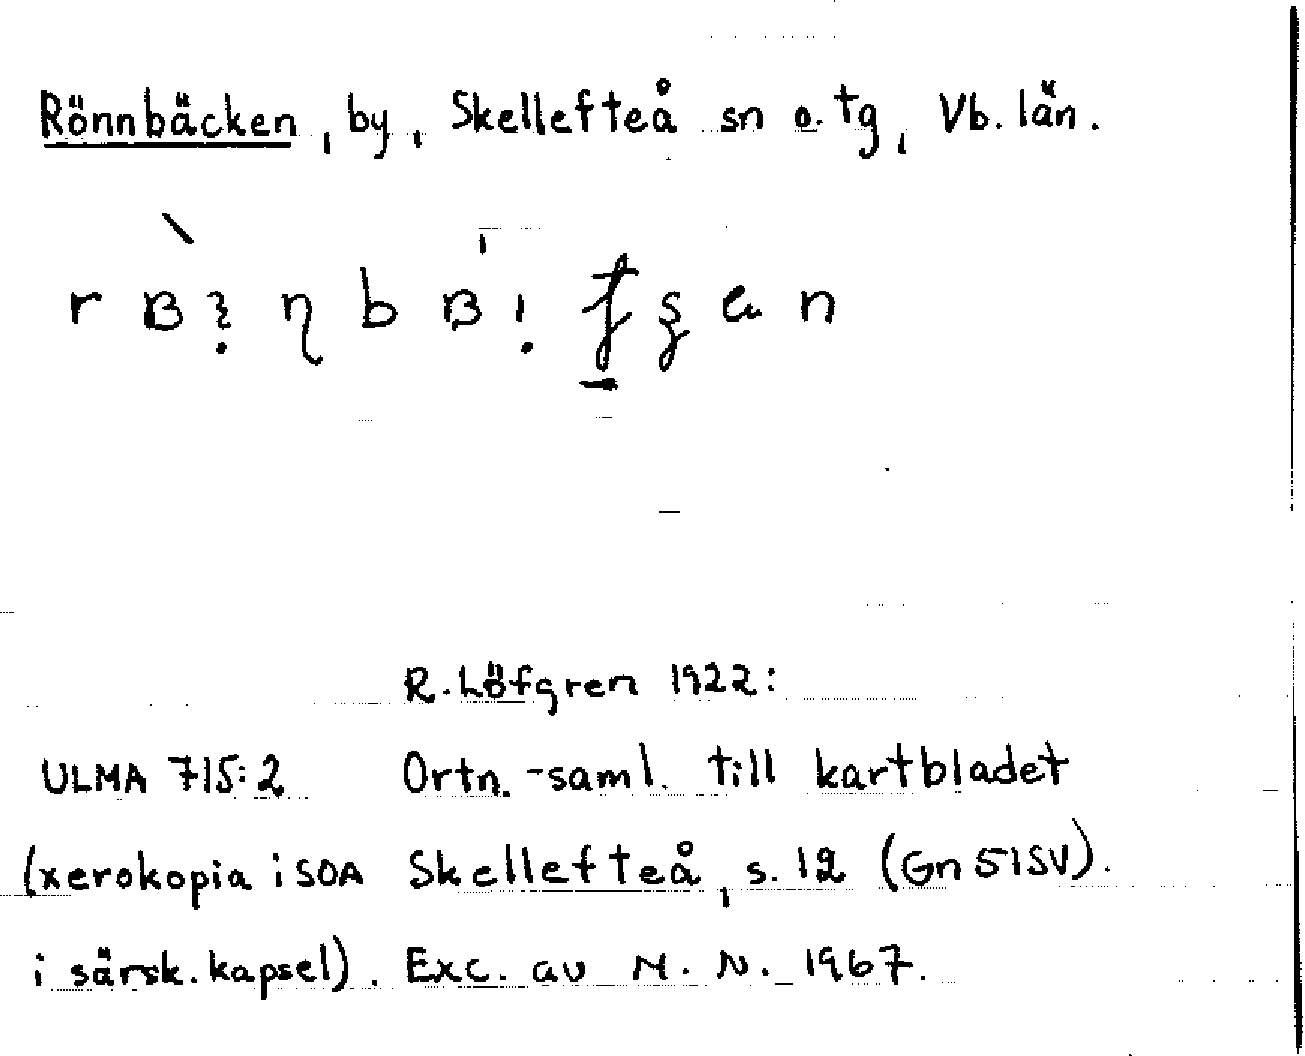 Rönnbäcken, by, Skellefteå sn o. tg, Vb. län.
R. Löfgren 1922:
ULMA 715:2 Ortn.-saml. till kartbladet
(xerokopia i SOA Skellefteå, s. 12 (Gn 51SV).
i särsk. kapsel). Exc. av M. N. 1967.